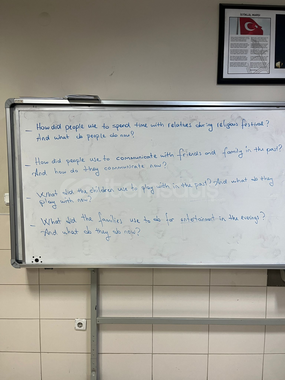 - How did people use to spend time with relatives during religious festivals?
And what do people do now?
- How did people use to communicate with friends and family in the past?
And how do they communicate now?
- What did the children use to play with in the past? And what do they
play with now?
- What did the families use to do for entertainment in the evenings?
And what do they do now?